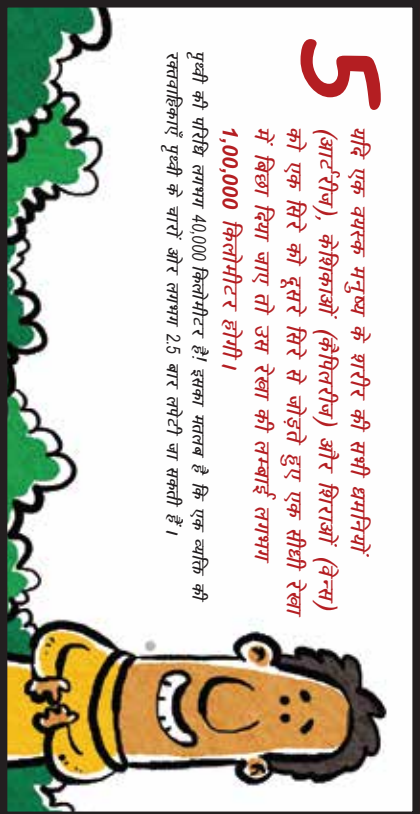 5
यदि एक वयस्क मनुष्य के शरीर की सभी धमनियों
(आर्टरीज), केशिकाओं (कैपिलरीज) और शिराओं (वेन्स)
को एक सिरे को दूसरे सिरे से जोड़ते हुए एक सीधी रेखा
में बिछा दिया जाए तो उस रेखा की लम्बाई लगभग
1,00,000 किलोमीटर होगी।
पृथ्वी की परिधि लगभग 40,000 किलोमीटर है! इसका मतलब है कि एक व्यक्ति की
रक्तवाहिकाएँ पृथ्वी के चारों ओर लगभग 2.5 बार लपेटी जा सकती हैं।